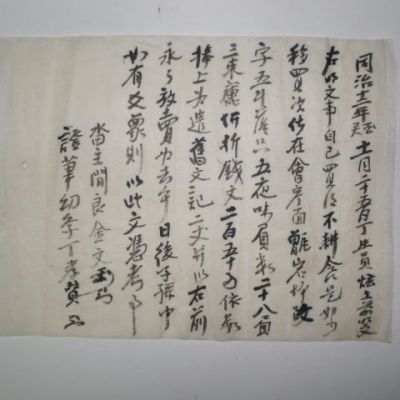 同治十二年癸酉十一月二十五日丁生員 前明文
右明文事自己買得不耕 是如可
移買次伏在會寧面 岩坪
字五斗落只五夜味負數二十八負
三束 價折錢文二百五十兩依數
捧上爲遣舊文記二丈幷以右前
永永放賣爲去乎日後子孫中
如有爻象則以此文憑考事
畓主閒良金文
證筆幼學丁孝贊